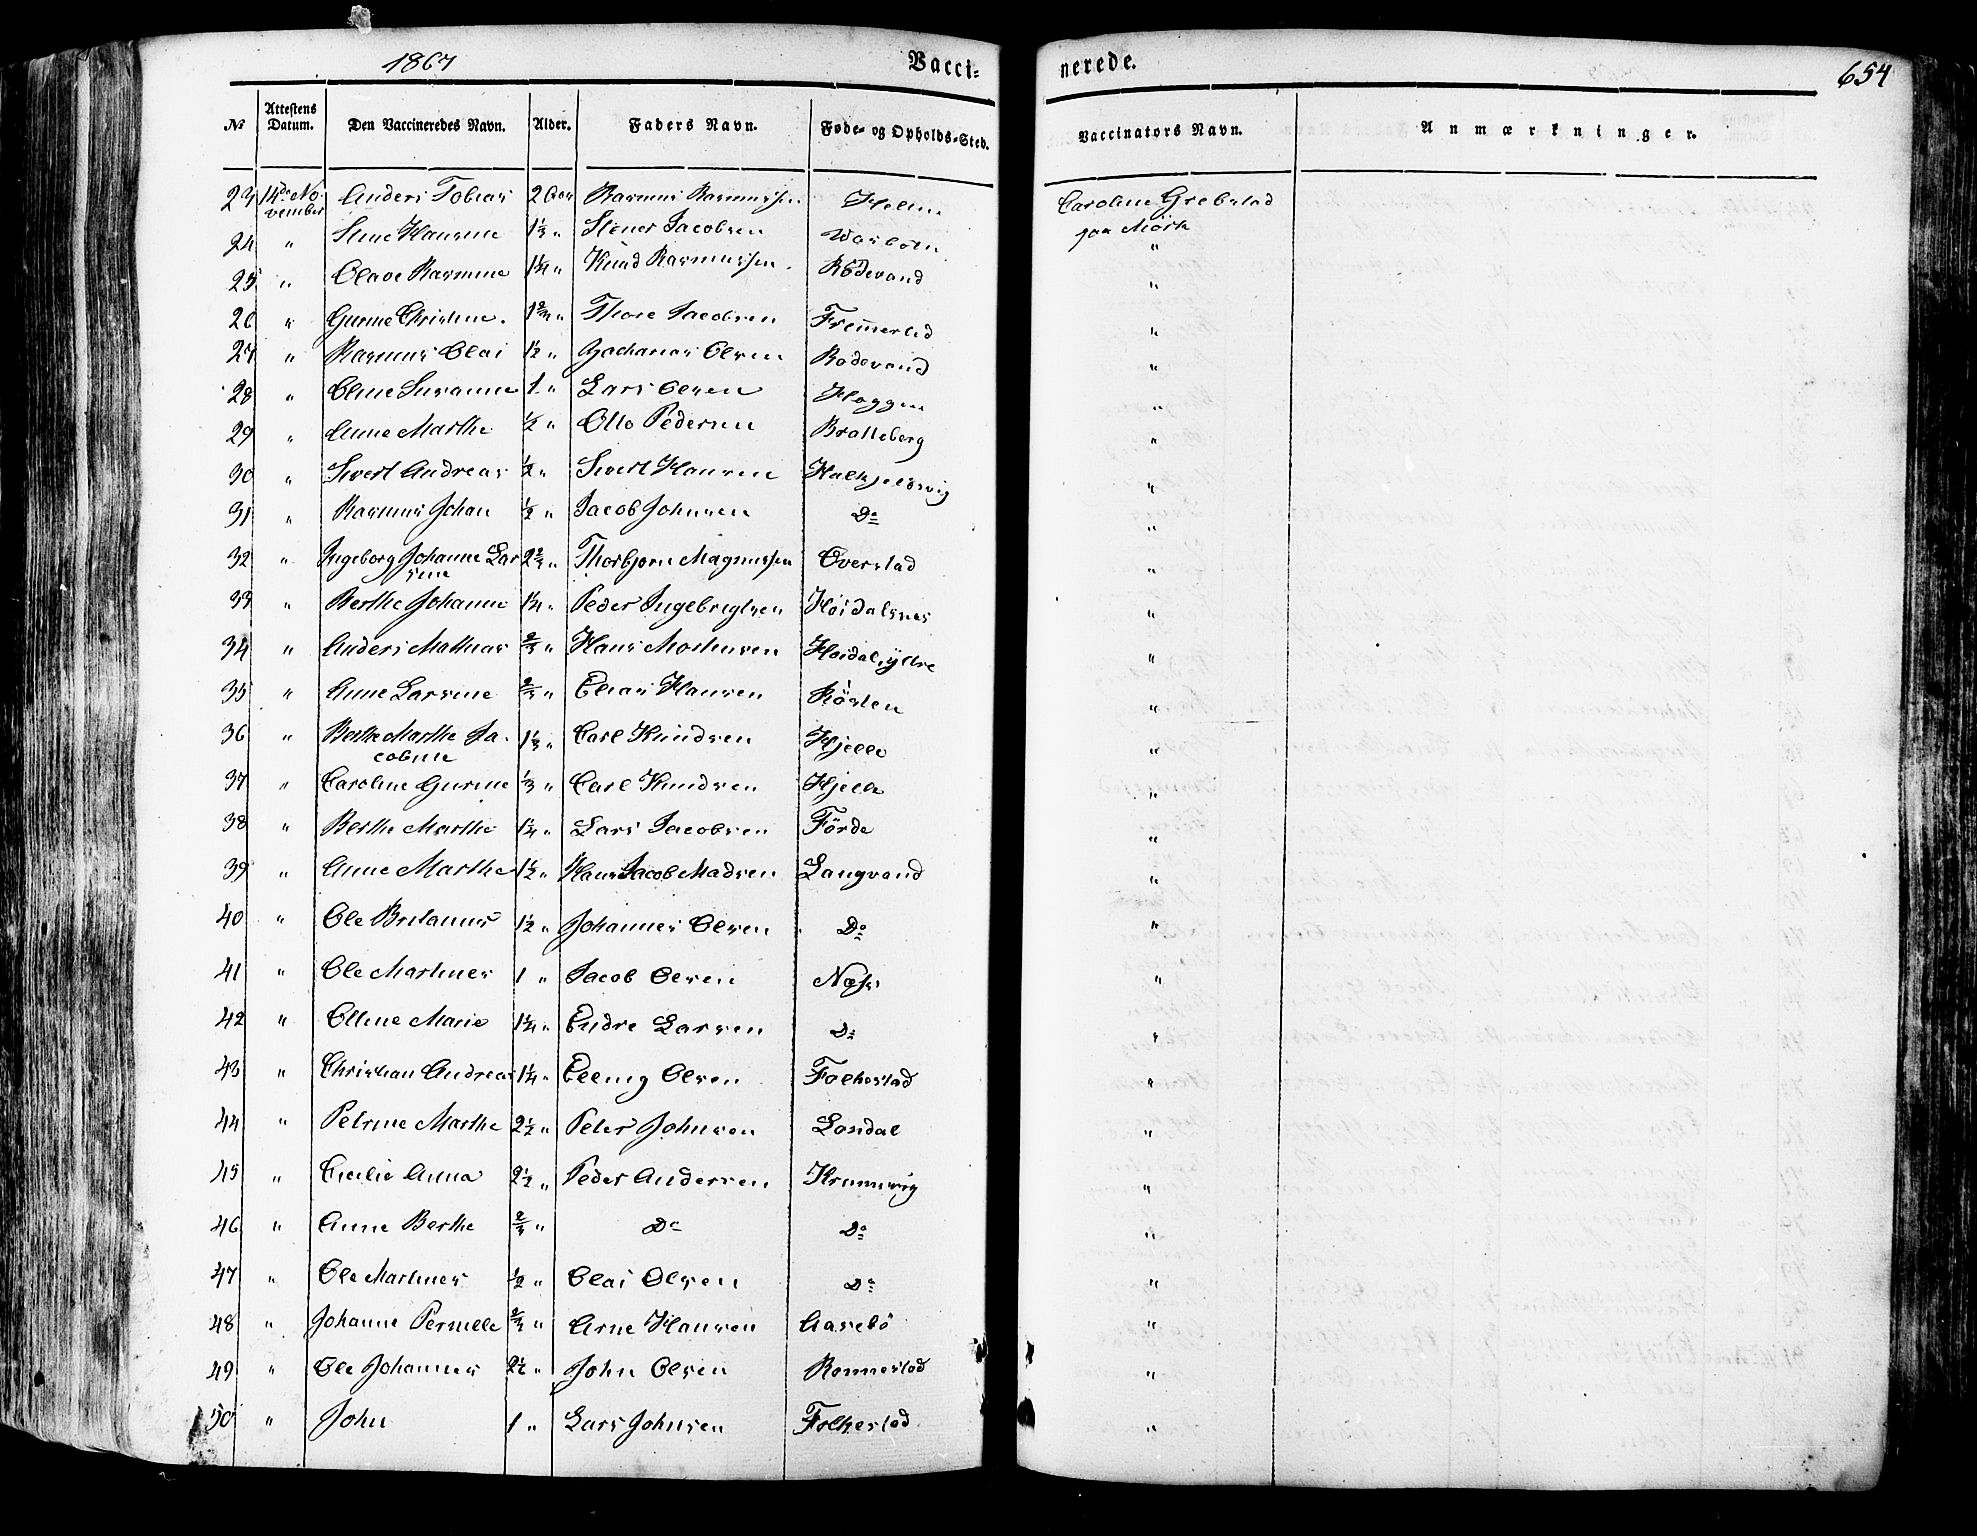 1867
Vacci-
nerede.
654
No
Attestens Datum.
Den Vaccineredes Navn.
Alder.
Faders Navn.
Føde- og Opholds-Sted.
Vaccinators Navn.
Anmærkninger.
23 14de November Anders Tobias 2 Aar Rasmus Rasmussen Holm Caroline Grebstad paa Mörk
24 " Stine Hansine 1⅓ " Stener Jacobsen "
25 " Olave Rasmine 1¼ " Knud Rasmussen Rödevand "
26 " Gurine Christine 1¾ " Thore Jacobsen "
27 " Rasmus Olai 1½ " Zacharias Olsen Rödevand "
28 " Oline Susanne 1 " Lars Olsen Floggen "
29 " Anne Marthe ½ " Otto Pedersen Bratteberg "
30 " Sivert Andreas ½ " Sivert Hansen Halkjeldsvig "
31 " Rasmus Johan ½ " Jacob Johnsen Do "
32 " Ingeborg Johanne Larsine 2⅔ " Thorbjørn Magnussen Overstad "
33 " Berthe Johanne 1¼ " Peder Ingebrigtsen Höidalsnes "
34 " Anders Mathias ⅔ " Hans Mortensen Höidalsydre "
35 " Anne Larsine ⅔ " Elias Hansen Rösten "
36 " Berthe Marthe Jacobine 1⅓ " Carl Knudsen Hjelle "
37 " Caroline Gurine ⅓ " Carl Knudsen Hjelle "
38 " Berthe Marthe 1¼ " Lars Jacobsen Förde "
39 " Anne Marthe 1½ " Hans Jacob Madsen Langvand "
40 " Ole Britanus 1½ " Johannes Olsen Do "
41 " Ole Martines 1 " Jacob Olsen Næss "
42 " Elline Marie 1¼ " Endre Larsen Do "
43 " Christian Andreas 1¼ " Elling Olsen Folkestad "
44 " Petrine Marthe 2½ " Peter Johnsen Löndal "
45 " Cecilie Anna 2½ " Peder Andersen Krumsvig "
46 " Anne Berthe ⅔ " Do Do "
47 " Ole Martines ½ " Olai Olsen Do "
48 " Johanne Pernelle ⅔ " Arne Hansen Aasebö "
49 " Ole Johannes 2½ " John Olsen Rönnestad "
50 " John 1 " Lars Johnsen Folkestad "